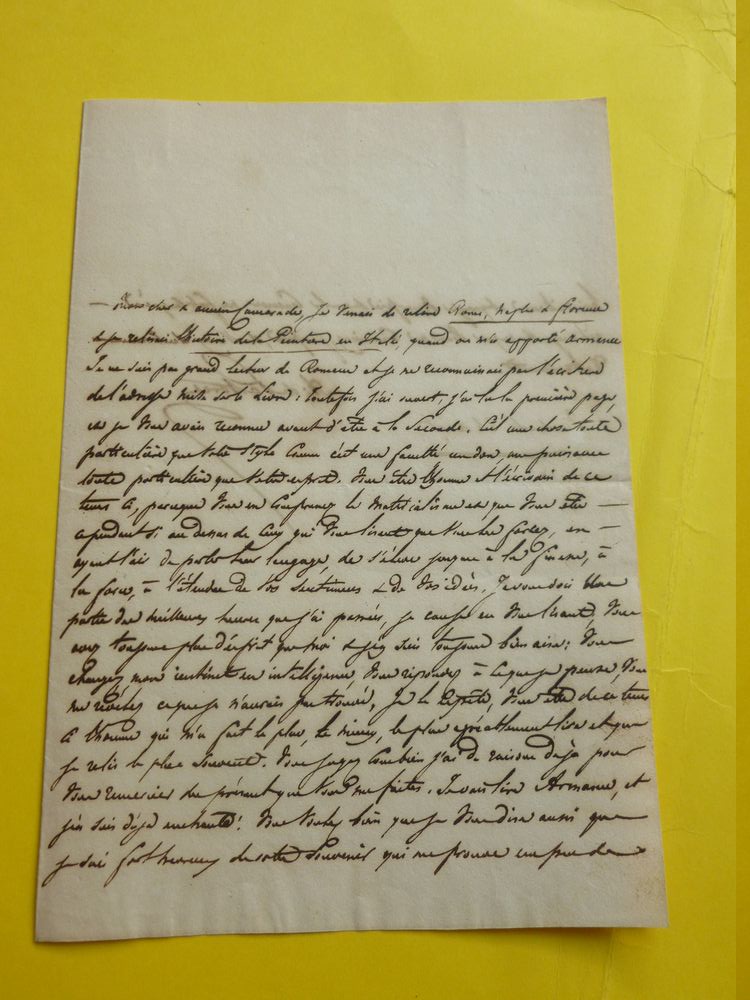 — Mon cher & ancien Camarade, Je Venais de relire Rome, Naples & Florence
& je relisais l'histoire de la Peinture en Italie, quand on m'a apporté Armance
Je ne suis pas grand lecteur de Romans et je ne reconnaissais pas l'écriture
de l'adresse mise sur le Livre: toutefois j'ai ouvert, j'ai lu la première page,
et je Vous avais reconnu avant d'être à la Seconde. C'est une chose toute
particulière que votre Style comme c'est une faculté un don, une puissance
toute particulière que votre esprit. Vous êtes l'homme & l'écrivain de ce
tems ci, parceque Vous en comprenez le matérialisme et que Vous êtes —
cependant si au dessus de Ceux qui Vous lisent que Vous les gardez, en —
ayant l'air de parler leur langage, de s'élever jusques à la finesse, à
la force, à l'étendue de Vos sentimens & de Vos idées. Je vous dois Une
partie des meilleures heures que j'ai passées, je cause en Vous lisant, Vous
avez toujours plus d'esprit que moi & j'en suis toujours bien aise: Vous
changez mon instinct en intelligence, Vous répondez à ce que je pense, Vous
me révélez ce que je n'aurais pas trouvé, Je le répète, Vous êtes de ce tems
ci l'homme qui m'a fait le plus, le mieux, le plus agréablement lire et que
je relis le plus souvent. Vous jugez combien j'ai de raisons déjà pour
Vous remercier du présent que Vous me faites. Je vais lire Armance, et
j'en suis déjà enchanté! Vous Voulez bien que je Vous dise aussi que
je suis fort heureux de votre Souvenir qui me prouve un peu de